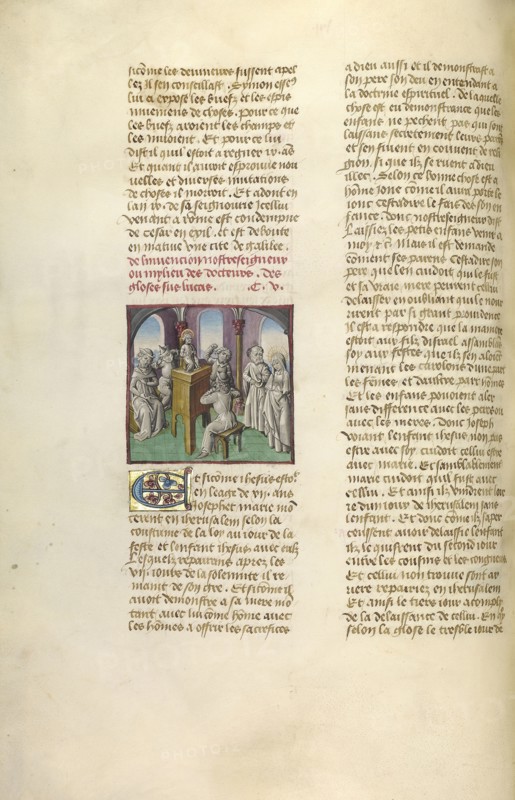 sicōme les devineurs fussent apel
lez il sen conseillast. Symon esse9
lui a exposé les buefz et les espis
anciemens de choses. pour ce que
les buefz aroient les champs et
les muoient. Et pour ce lui
dist il quil estoit a regner ix. ās
Et quant il auoit esprouue nou
uelles et diuerses mutations
de choses il morroit. Et adont en
lan ix. de sa seigneurie icellui
venant a rōme est condempne
de cesar en exil. et est deboute
en
une cite de galilee.
de linuencion nostre seigneur
ou mylieu des docteurs. Des
gloses sus lucas. C. v.
Et sicōme ihesus estoit
en leage de xij. ans
ioseph et marie mō
terent en iherusalem selon la
coustume de la loy au iour de la
feste et lenfant ihesus auec eulz
Lesquelz repairans aprez les
vij. iours de la solempnite il re
manit de son gre. Et sicōme il
auoit demonstre a sa mere mō
tant auec lui cōme hōme auec
les hōmes a offrir les sacrefices
a dieu aussi et il demonstrast a
son pere son dieu en entendant a
la doctrine espirituel. De laquelle
chose est eu demonstrance que les
enfans ne pechent pas qui sont
laissans secretement leurs parens
et sen fuient en couuent de reli
gion. si que ilz se ruent a dieu
illec. Selon ce bonne chose est a
hōme ione cōme il aura porte le
iouc cestadire le fais des son en
fance. donc nostreseigneur dist
Laissiez les petis enfans venir a
moy &c. Mais il est demande
cōment ses parens cestadire son
pere que len cuidoit quil le fust
et sa vraie mere peurent cellui
delaisser en oubliant quil le nour
rirent par si grant prouidence
Il est a respondre que la maniere
estoit aux filz disrael assamblans
soy aux festes que ilz en aloient
menant les carolons dune part
les femes et dautre part hōmes
Et les enfans pouoient aler
sans difference auec les peres ou
auec les meres. donc Joseph
voiant lenfant ihesus non pas
estre auec soy cuidoit cellui estre
auec marie. Et samblablement
marie cuidoit quil fust auec
cellui. Et ainsi ilz vindrent loir
re dun iour de iherusalem sans
lenfant. Et donc cōme ilz saper
ceussent auoir delaissie lenfant
ilz le quistrent du second iour
entre les cousins et les congneus
Et cellui non trouue sont ar
riere repairiez en iherusalem
Et ainsi le tiers iour acomply
de la delaissance de cellui. En
selon la glose le tresble iour de